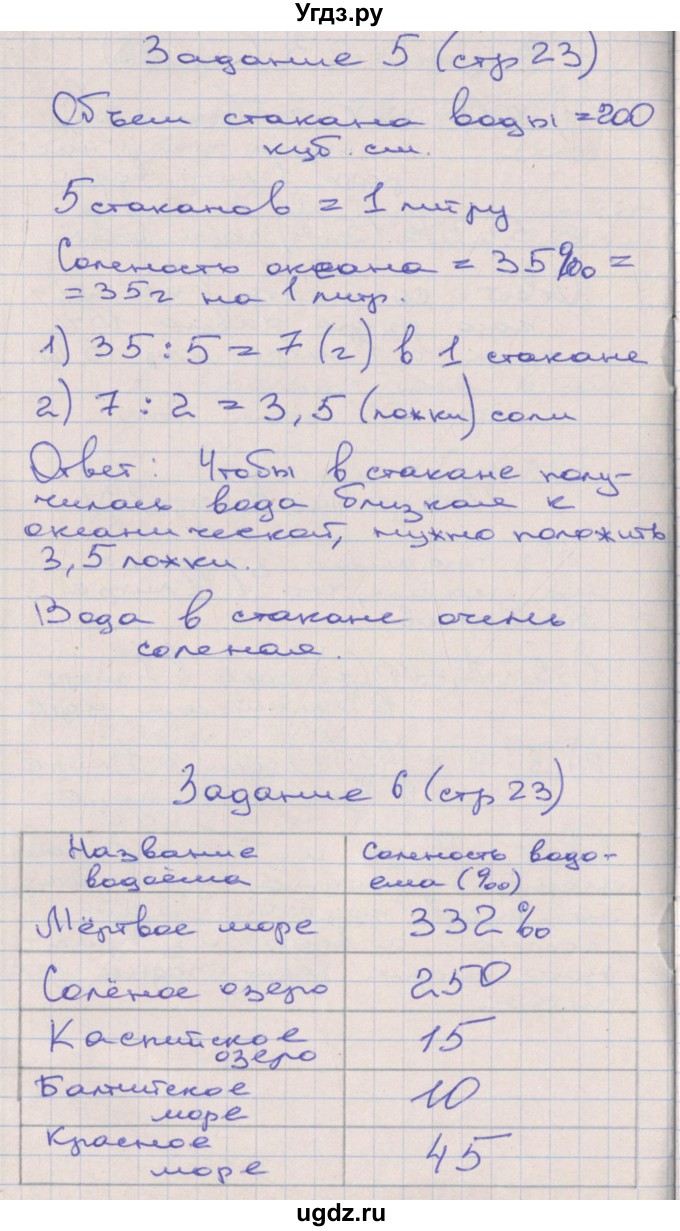 Угдз.ру
Задание 5 (стр 23)
Объем стакана воды = 200
куб. см.
5 стаканов = 1 литру
Соленость океана = 35‰ =
= 35 г на 1 литр.
1) 35 : 5 = 7 (г) в 1 стакане
2) 7 : 2 = 3,5 (ложки) соли
Ответ: Чтобы в стакане полу-
чилась вода близкая к
океанической, нужно положить
3,5 ложки.
Вода в стакане очень
соленая.
Задание 6 (стр 23)
Название Соленость водо-
водоёма ема (‰)
Мёртвое море 332‰
Солёное озеро 250
Каспийское 15
озеро
Балтийское 10
море
Красное 45
море
ugdz.ru